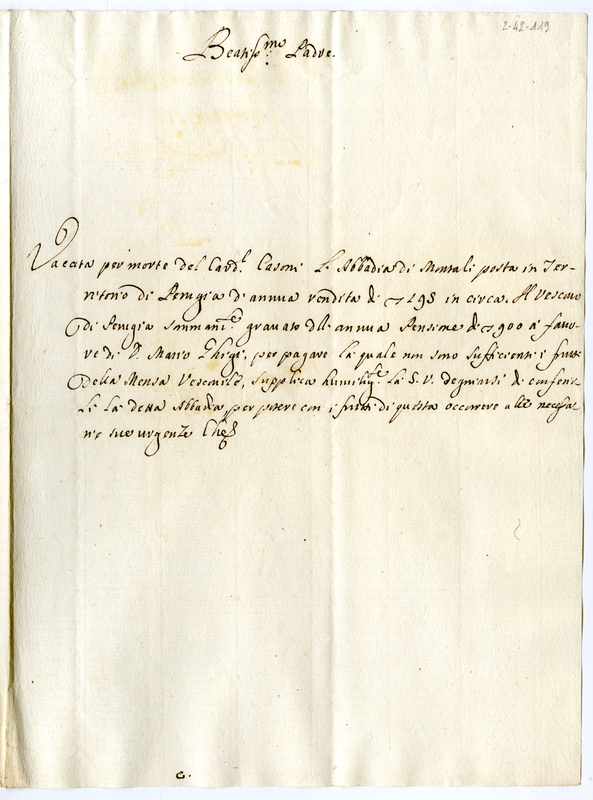 2-42-119
Beatiss.mo Padre.
Vacata per morte del Card.l Casoni l'Abbadia di Montali posta in Ter-
ritorio di Perugia d'annua rendita di 198 in circa. Il Vescovo
di Perugia gravato dell' annua Pensione di 900 à favo-
re di D. Mario Chigi, per pagare la quale non sono sufficienti i frutti
della Mensa Vescovile, supplica humilm.te la S. V. degnarsi di conferir
li la detta Abbadia per potere con i frutti di questa occorrere alle necessa
rie sue urgenze Che